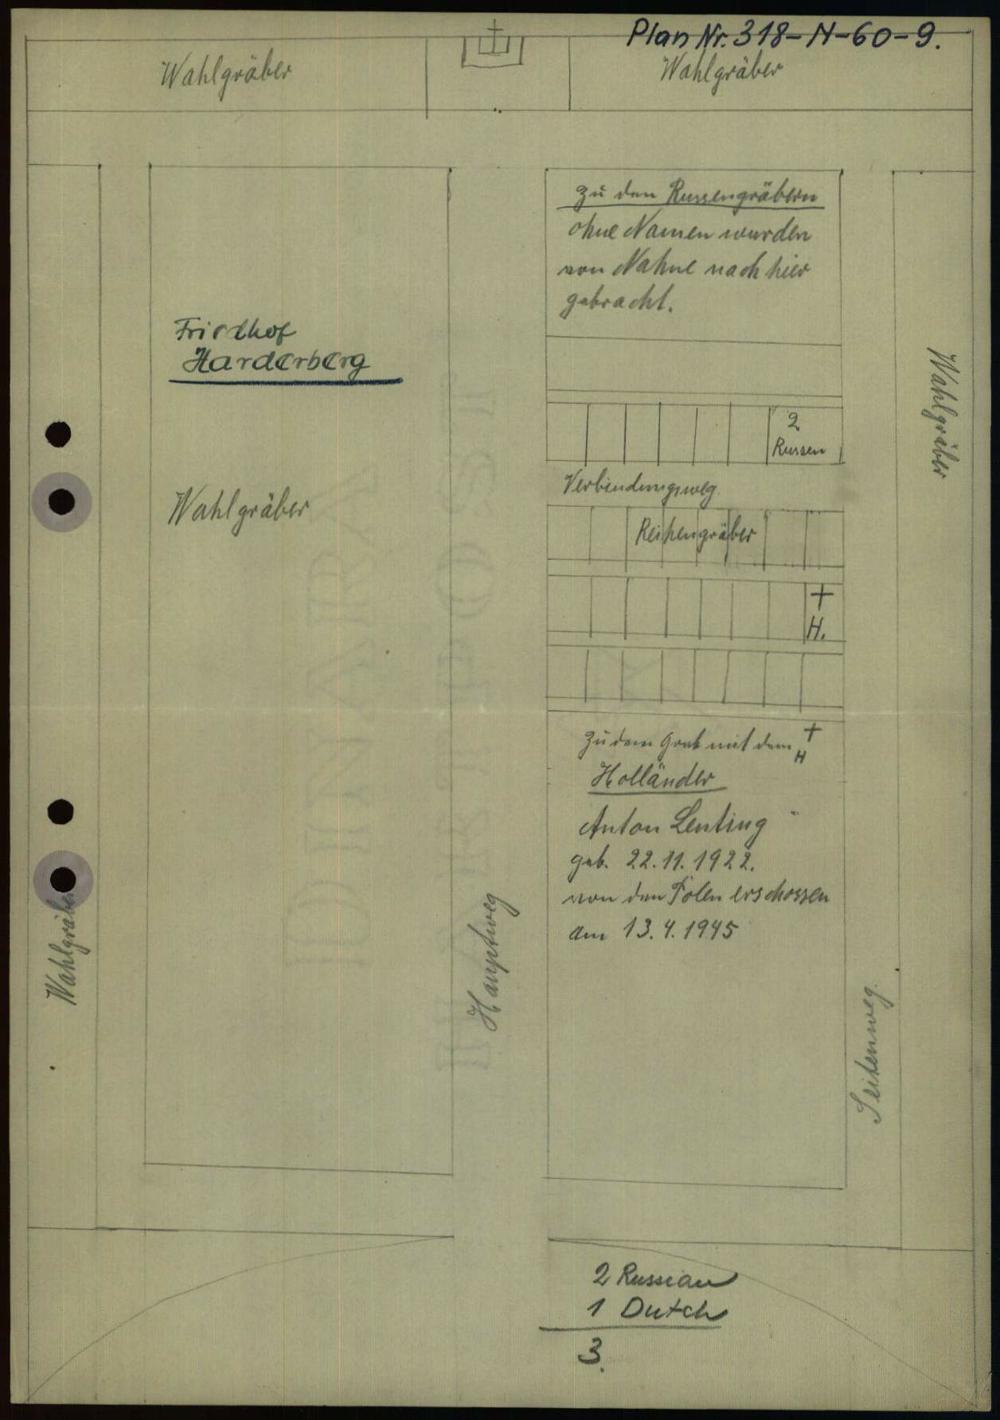 Plan Nr. 318-N-60-9.
Wahlgräber
Wahlgräber
zu den Russengräbern
ohne Namen wurden
von Nahne nach hier
gebracht.
Friedhof
Harderberg
2
Russen
Wahlgräber
Verbindungsweg
Wahlgräber
Reihengräber
+
H.
zu dem Grab mit dem +
H
Holländer
Anton Lenting
geb. 22.11.1922.
von den Polen erschossen
am 13.4.1945
Wahlgräber
Hauptweg
Seitenweg.
2 Russian
1 Dutch
3.